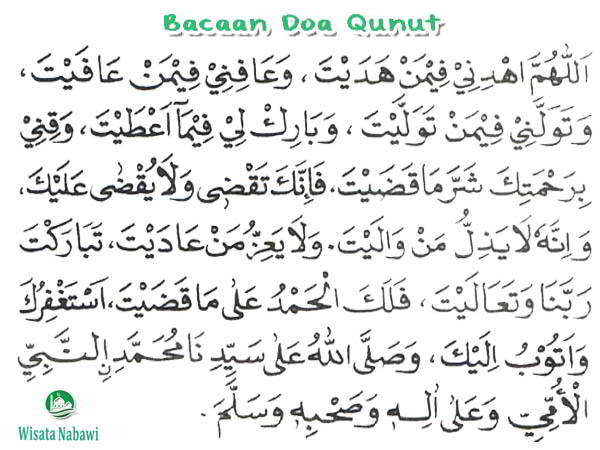 Bacaan Doa Qunut
اَللّٰهُمَّ اهْدِنِيْ فِيْمَنْ هَدَيْتَ ، وَعَافِنِيْ فِيْمَنْ عَافَيْتَ ،
وَتَوَلَّنِيْ فِيْمَنْ تَوَلَّيْتَ ، وَبَارِكْ لِيْ فِيْمَآ اَعْطَيْتَ ، وَقِنِيْ
بِرَحْمَتِكَ شَرَّ مَا قَضَيْتَ، فَاِنَّكَ تَقْضِى وَلَا يُقْضٰى عَلَيْكَ،
وَاِنَّهٗ لَا يَذِلُّ مَنْ وَالَيْتَ. وَلَا يَعِزُّ مَنْ عَادَيْتَ، تَبَارَكْتَ
رَبَّنَا وَتَعَالَيْتَ ، فَلَكَ الْحَمْدُ عَلٰى مَا قَضَيْتَ، اَسْتَغْفِرُكَ
وَاَتُوْبُ اِلَيْكَ، وَصَلَّى اللّٰهُ عَلٰى سَيِّدِنَا مُحَمَّدِ ِالنَّبِيِّ
الْاُمِّيِّ وَعَلٰى اٰلِهٖ وَصَحْبِهٖ وَسَلَّمَ .
Wisata Nabawi